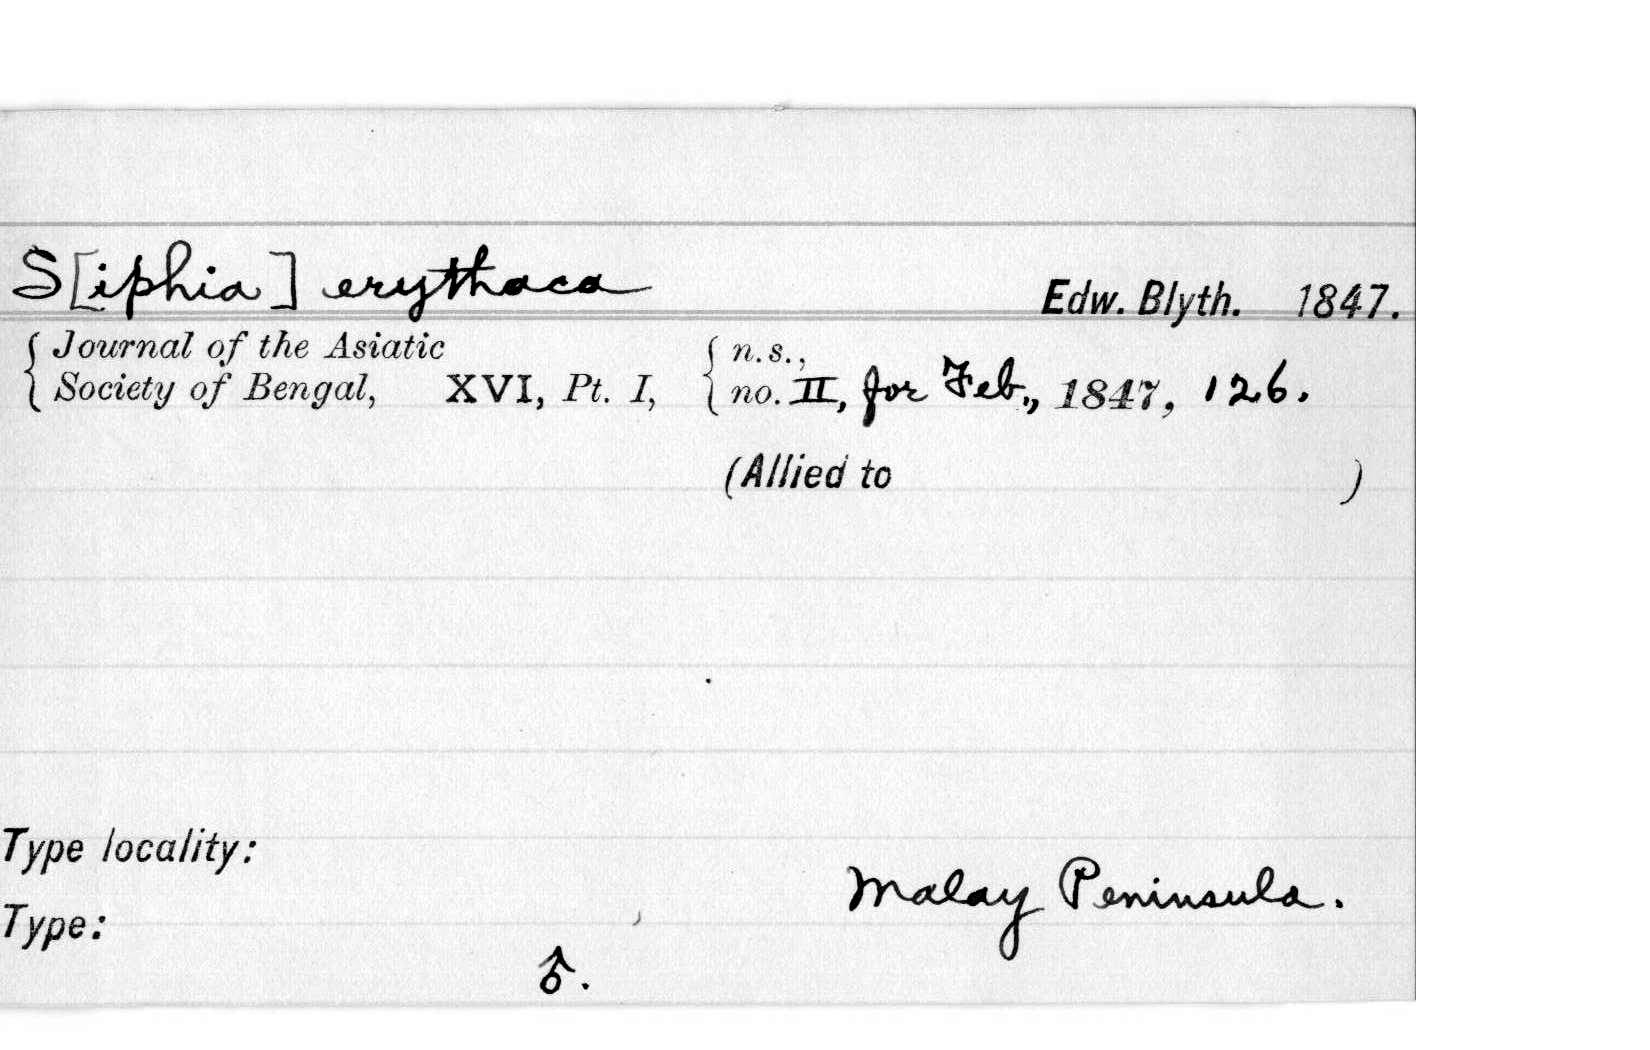 S[iphia] erythaca Edw. Blyth. 1847.
{ Journal of the Asiatic { n.s.,
Society of Bengal, XVI, Pt. I, no. II, for Feb., 1847, 126.
(Allied to )
Type locality:
Malay Peninsula.
Type:
♂.